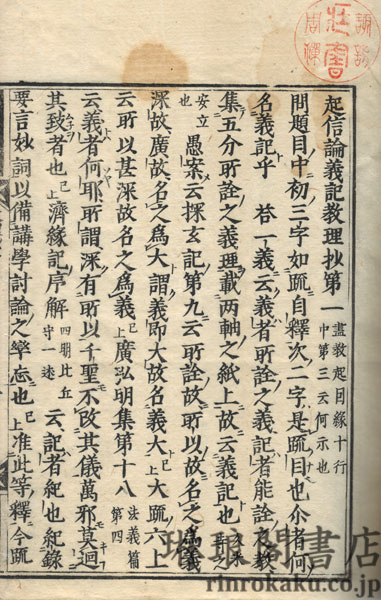 起信論義記教理抄第一 盡教起因緣十行
中第三云何示也
問題目中初三字如疏自釋次二字是疏目也尒者何
名義記乎 荅一義云義者所詮之義記者能詮之教
集五分所詮之義理載两軸之紙上故云義記也
安立
也 愚案云探玄記第九云所詮故所以故名之爲義
深故廣故名之爲大謂義即大故名義大 已上 大疏六上
云所以甚深故名之爲義 已上 廣弘明集第十八 法義篇
第四
云義者何耶所謂深有所以千聖不改其儀萬邪莫迴
其致者也 已上 濟緣記序解 四明比丘
守一述 云記者紀也紀錄
要言妙詞以備講學討論之卒忘也 已上 准此等釋今疏
琳琅閣書店
rinrokaku.co.jp